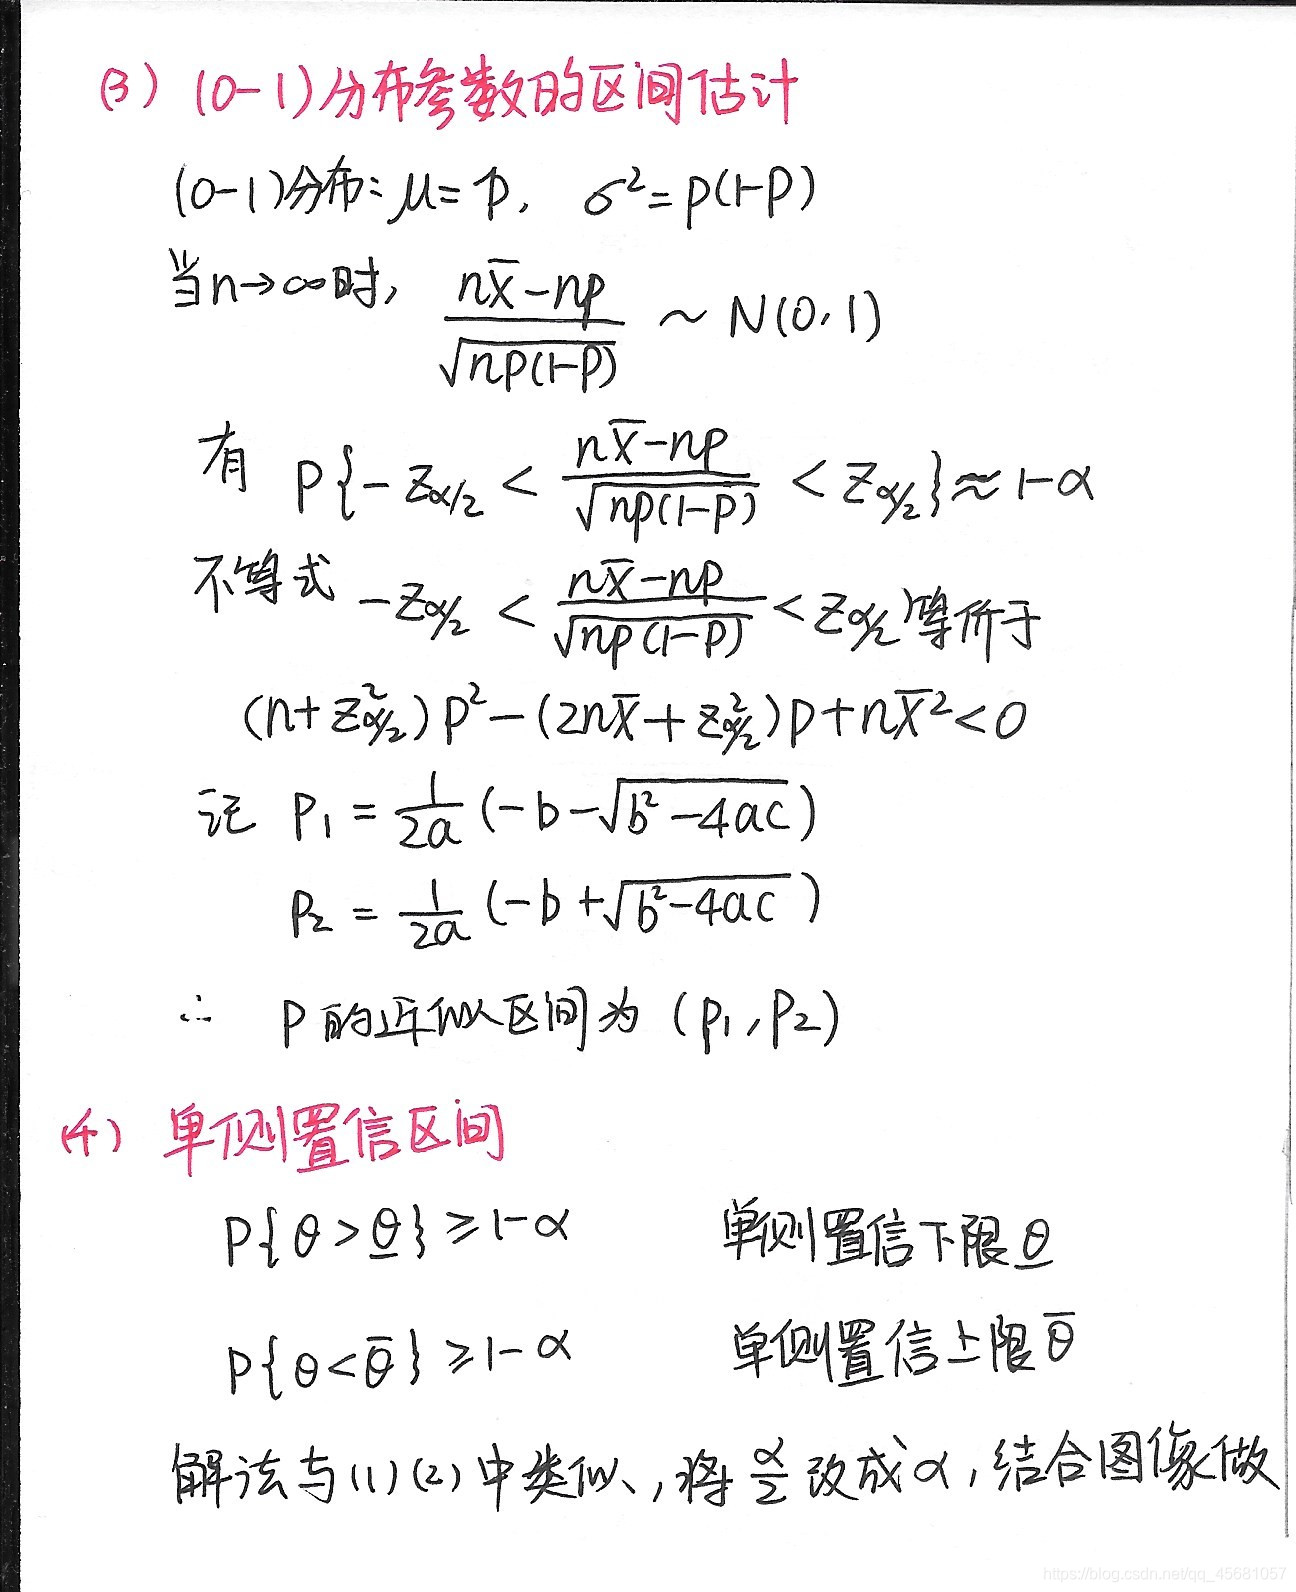 (3) (0-1)分布参数的区间估计
(0-1)分布: μ=p, σ²=p(1-p)
当n→∞时, (nX̄-np)/√(np(1-p)) ~ N(0,1)
有 P{-z_{α/2} < (nX̄-np)/√(np(1-p)) < z_{α/2}} ≈ 1-α
不等式 -z_{α/2} < (nX̄-np)/√(np(1-p)) < z_{α/2} 等价于
(n+z²_{α/2})p²-(2nX̄+z²_{α/2})p+nX̄²<0
记 P₁ = 1/2a (-b-√(b²-4ac))
P₂ = 1/2a (-b+√(b²-4ac))
∴ P的近似区间为 (p₁,p₂)
(4) 单侧置信区间
P{θ>θ̲}≥1-α 单侧置信下限θ̲
P{θ<θ̄}≥1-α 单侧置信上限θ̄
解法与(1)(2)中类似,将α/2改成α,结合图像做
https://blog.csdn.net/qq_45681057